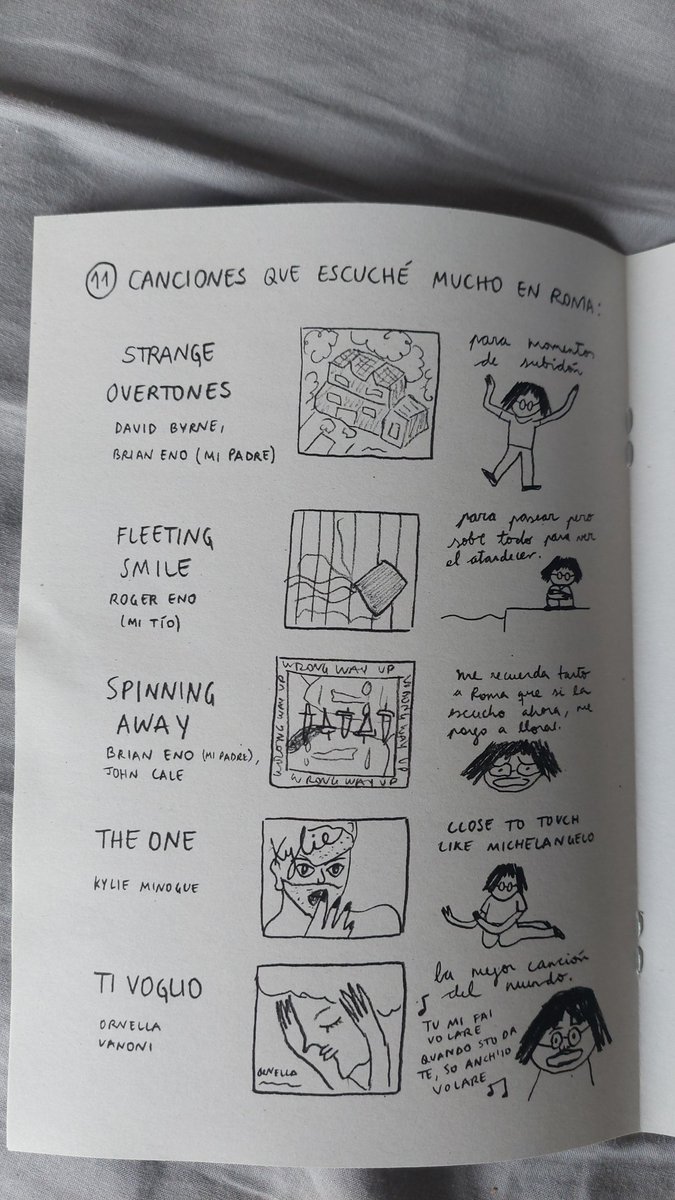 11 CANCIONES QUE ESCUCHÉ MUCHO EN ROMA:
STRANGE
OVERTONES
DAVID BYRNE,
BRIAN ENO (MI PADRE)
para momentos
de subidón
FLEETING
SMILE
ROGER ENO
(MI TÍO)
para pasear pero
sobe todo para ver
el atardecer.
SPINNING
AWAY
BRIAN ENO (MI PADRE),
JOHN CALE
WRONG WAY UP
WRONG WAY UP
WRONG WAY UP
WRONG WAY UP
me recuerda tanto
a Roma que si la
escucho ahora, me
pongo a llorar.
THE ONE
KYLIE MINOGUE
Kylie
CLOSE TO TOUCH
LIKE MICHELANGELO
TI VOGLIO
ORNELLA
VANONI
ORNELLA
la mejor canción
del mundo.
TU MI FAI
VOLARE
QUANDO STO DA
TE, SO ANCH'IO
VOLARE